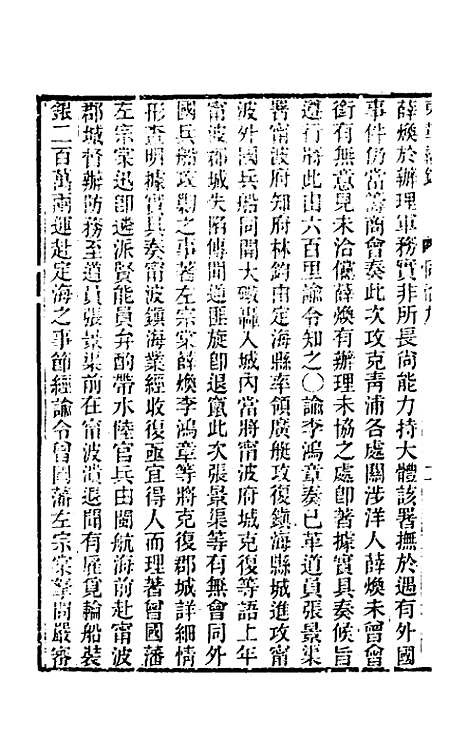 薛煥於辦理軍務實非所長尚能力持大體該署撫於遇有外國
事件仍當籌商會奏此次攻克靑浦各處關涉洋人薛煥未曾會
銜有無意見未洽儻薛煥有辦理未協之處卽著據實具奏候旨
遵行將此由六百里諭令知之〇諭李鴻章奏已革道員張景渠
署甯波府知府林鈞由定海縣率領廣艇攻復鎭海縣城進攻甯
波外國兵船同開大礮轟入城內當將甯波府城克復等語上年
甯波郡城失陷傳聞道匪旋卽退竄此次張景渠等有無會同外
國兵船攻勦之事著左宗棠薛煥李鴻章等將克復郡城詳細情
形查明據實具奏甯波鎭海業經收復亟宜得人而理著曾國藩
左宗棠迅卽遴派賢能員弁酌帶水陸官兵由閩航海前赴甯波
郡城督辦防務至道員張景渠前在甯波潰退聞有雇覓輪船裝
銀二百萬兩運赴定海之事節經諭令曾國藩左宗棠等問嚴審